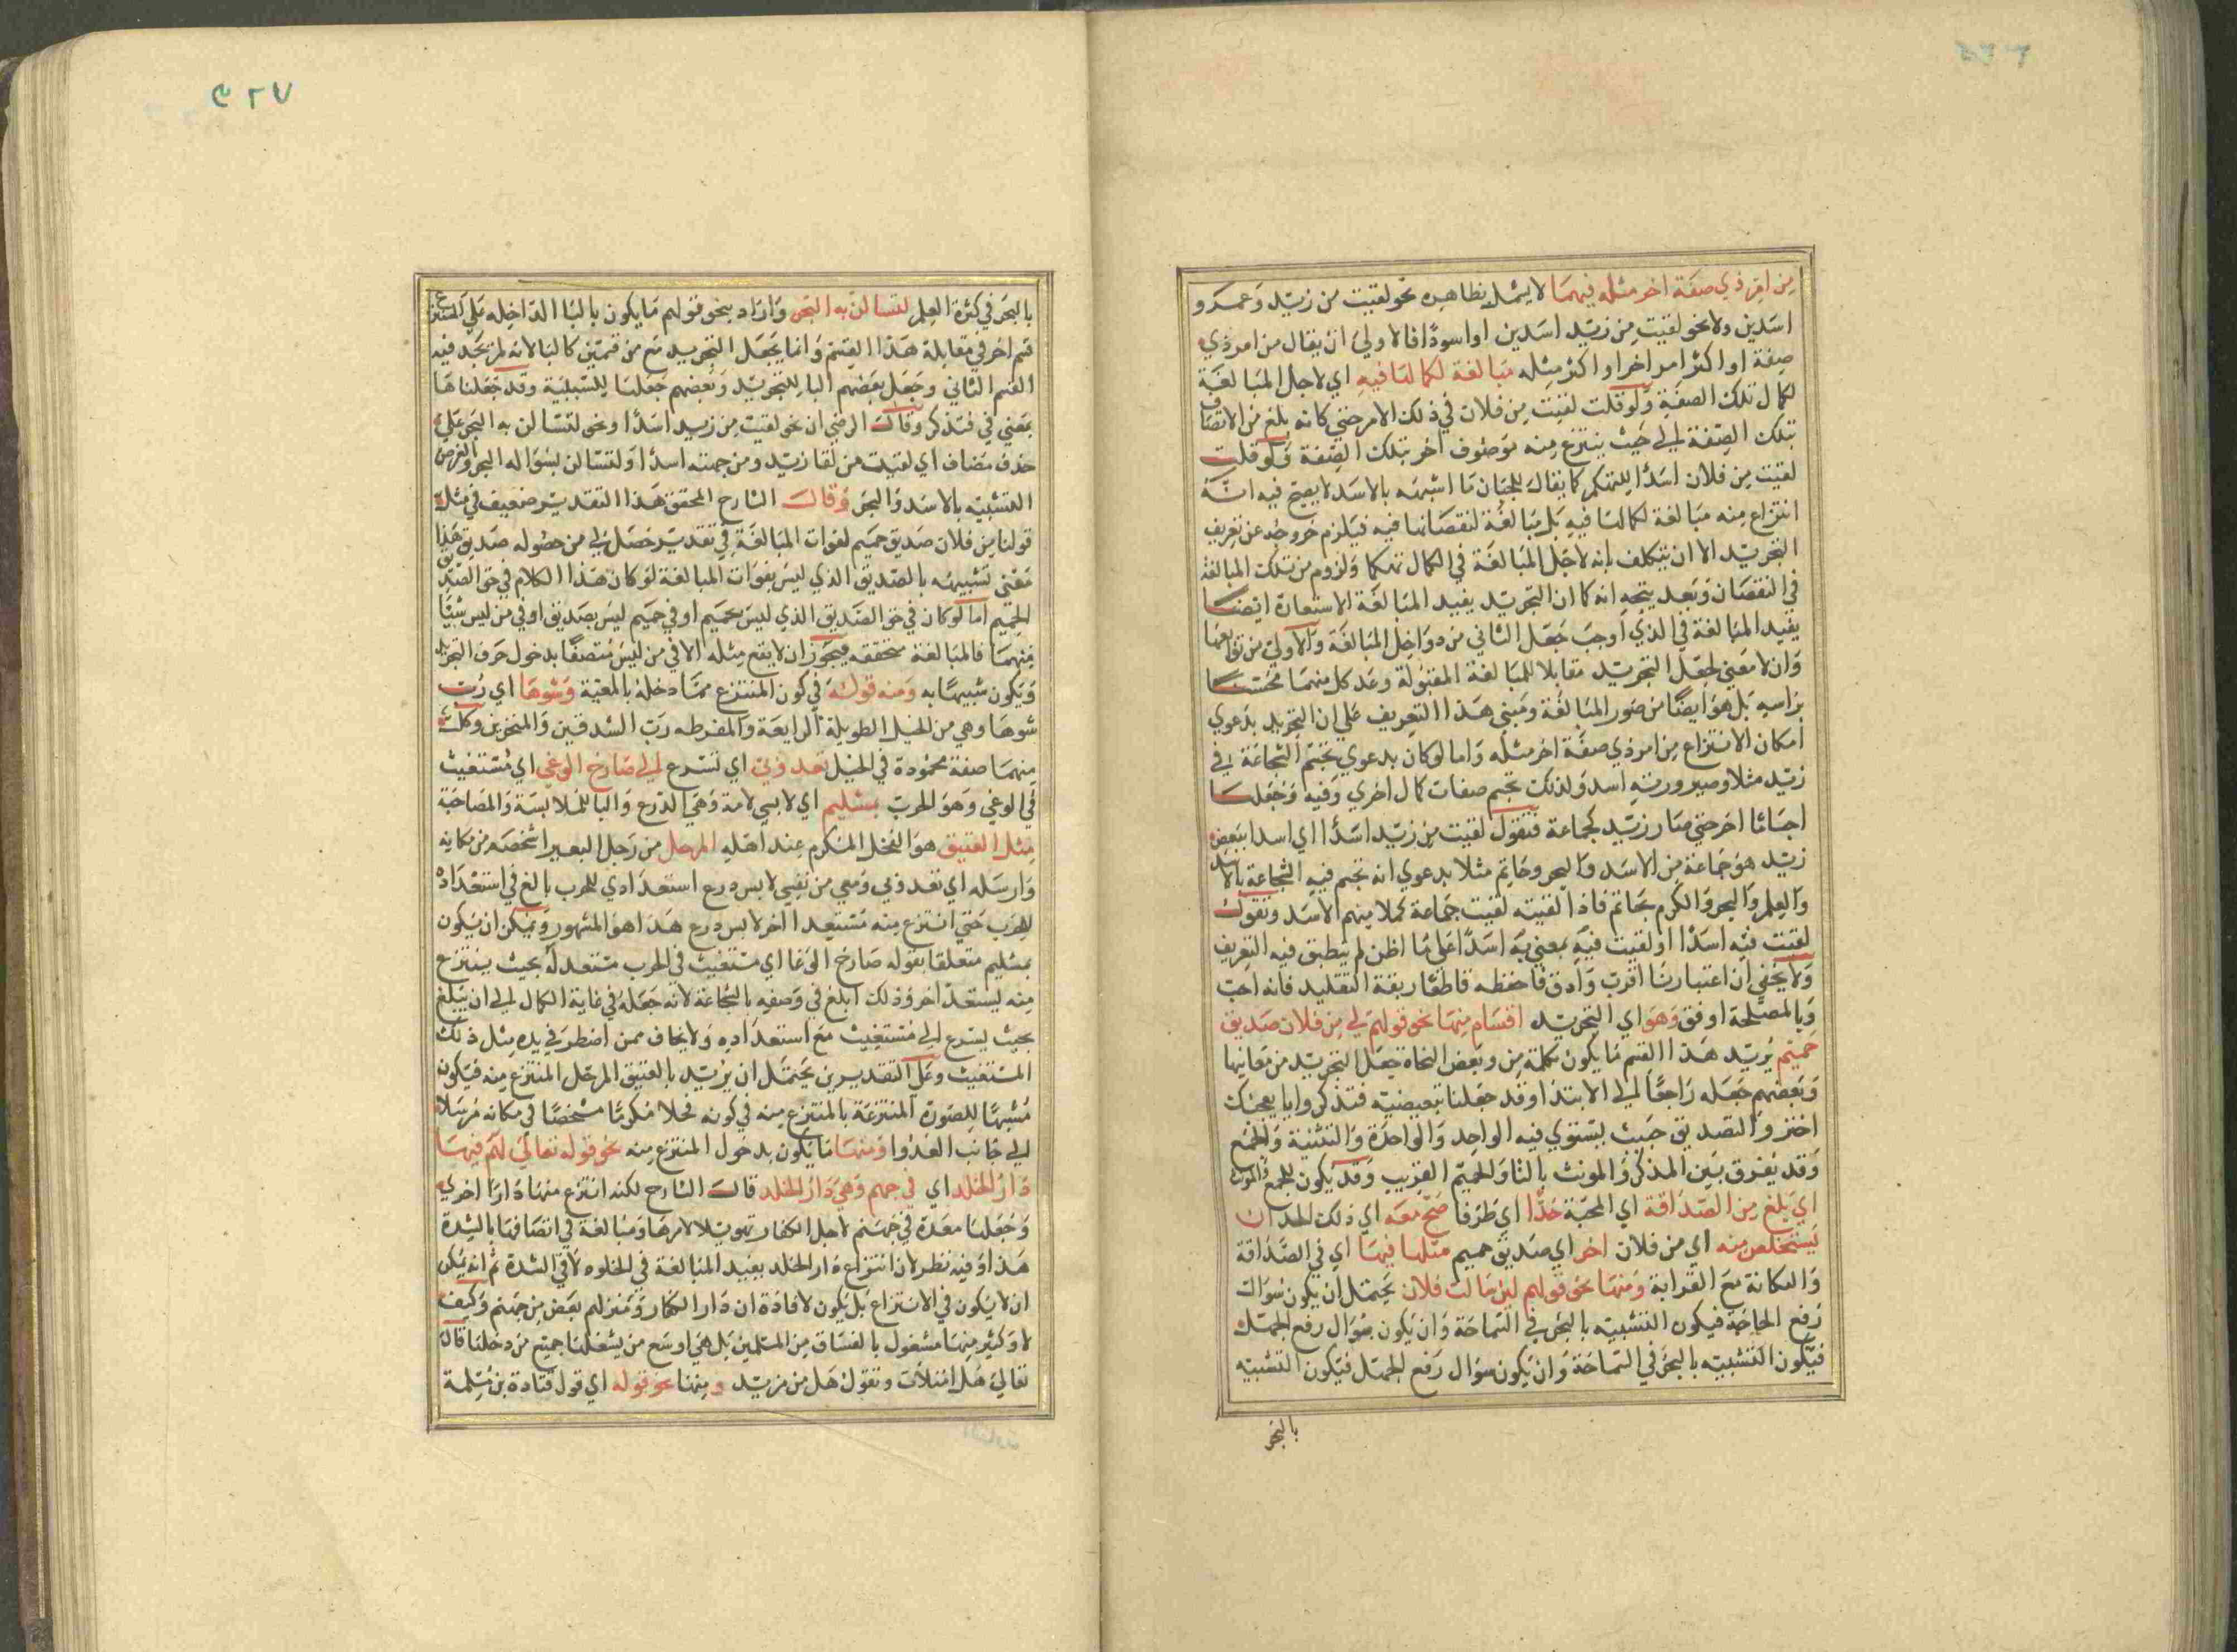 من امر ذي صفة اخر مثله فيهما لا يشمل بظاهره نحو لقيت من زيد وعمرو
اسدين ولا نحو لقيت من زيد اسدين او اسودا فالاولى ان يقال من امر ذي
صفة او اكثر امر اخر او اكثر مثله مبالغة لكمالها فيه اي لاجل المبالغة
لكمال تلك الصفة ولو قلت لقيت من فلان في ذلك الامر حتي كانه بلغ من الاتصاف
بتلك الصفة الي حيث ينتزع منه موصوف اخر بتلك الصفة ولو قلت
لقيت من فلان اسدا للتهكم كما يقال للجبان ما اشبهه بالاسد لا يصح فيه انه
انتزاع منه مبالغة لكمالها فيه بل مبالغة لنقصانها فيه فيلزم خروجه عن تعريف
التجريد الا ان يتكلف بانه لاجل المبالغة في الكمال تهكما ولزوم من تلك المبالغة
في النقصان وبعد يتجه انه كما ان التجريد يفيد المبالغة الاستعارة ايضا
يفيد المبالغة في الذي اوجب جعل الثاني من دواخل المبالغة والاولي من توابعها
وان لا معني لجعل التجريد مقابلا للمبالغة المقبولة وعد كل منهما محسنا
براسه بل هو ايضا من صور المبالغة ومبني هذا التعريف علي ان التجريد بدعوي
امكان الانتزاع من امر ذي صفة اخر مثله واما لو كان بدعوي تجسم الشجاعة في
زيد مثلا وصيرورته اسد ولذلك تجسم صفات كمال اخري وفيه وجعلها
اجساما اخر حتي صار زيد كجماعة فتقول لقيت من زيد اسدا اي اسدا ببعض
زيد هو جماعة من الاسد والبحر وحاتم مثلا بدعوي انه تجسم فيه الشجاعة بالاسد
والعلم والبحر والكرم بحاتم فاذا لقيته لقيت جماعة كملا منهم الاسد وتقول
لقيت فيه اسدا او لقيت فيه بمعني به اسدا علي ما اظن لم ينطبق فيه التعريف
ولا يخفي ان اعتبارنا اقرب وادق فاحفظه قاطعا ربقة التقليد فانه احب
وبالمصلحة اوفق وهو اي التجريد اقسام منها نحو قولهم لي من فلان صديق
حميم يريد هذا القسم ما يكون بكلمة من وبعض النحاة جعل التجريد من معانيها
وبعضهم جعله راجعا الي الابتدا وقد جعلنا تبعيضية فتذكر وايا يعجبك
اختر والتصديق حيث يستوي فيه الواحد والواحدة والتثنية والجمع
وقد يفرق بين المذكر والمونث بالتا والحميم القريب وقد يكون للجمع والمونث
اي بلغ من الصداقة اي المحبة حدا اي طرفا صح معه اي ذلك الحد ان
يستخلص منه اي من فلان اخر اي صديق حميم مثلها فيها اي في الصداقة
والمكانة مع القرابة ومنها نحو قولهم لئن سالت فلان يحتمل ان يكون سؤال
رفع الحاجة فيكون التشبيه بالبحر في السماحة وان يكون سؤال رفع الجهل
فيكون التشبيه بالبحر في السماحة وان يكون سؤال رفع الجهل فيكون التشبيه
بالبحر
٣٢٧
بالبحر في كثرة العلم لتسالن به البحر واراد بنحو قولهم ما يكون بالبا الداخله علي المنتزع
قسم اخر في مقابلة هذا القسم وانما يجعل التجريد مع من قسمين كالبا لانه لم نجد فيه
القسم الثاني وجعل بعضهم البا للتجريد وبعضهم جعلها للسببية وقد جعلناها
بمعني في فتذكر وقال الرضي ان نحو لقيت من زيد اسدا ونحو لتسالن به البحر علي
حذف مضاف اي لقيت من لقا زيد ومن جهته اسدا او لتسالن بسؤاله البحر والغرض
التشبيه بالاسد والبحر وقال الشارح المحقق هذا التقدير ضعيف في مثل
قولنا من فلان صديق حميم لفوات المبالغة في تقدير حصل لي من حصوله صديق هذا
معني تشبيهه بالصديق الذي ليس بفوات المبالغة لو كان هذا الكلام في حق الصديق
الحميم اما لو كان في حق الصديق الذي ليس بحميم او في حميم ليس بصديق او في من ليس شيئا
منهما فالمبالغة متحققه فيجوز ان لا يقع مثله الا في من ليس متصفا بدخول حرف التجريد
ويكون شبيها به ومنه قوله في كون المنتزع مما دخله بالمعية وشوها اي رب
شوها وهي من الخيل الطويلة الرايعة والمفرطه رب الشدقين والمنخرين وكل
منهما صفة محمودة في الخيل تعدو بي اي تسرع الي صارخ الوغي اي مستغيث
في الوغي وهو الحرب بمستليم اي لابس لامة وهي الدرع والبا للملابسة والمصاحبة
مثل الفنيق هو الفحل المكرم عند اهله المرحل من رحل البعير اشخصه من مكانه
وارسله اي تعدو بي ومعي من نفسي لابس درع استعدادي للحرب بالغ في استعداده
للحرب حتي انتزع منه مستعدا اخر لابس درع هذا هو المشهور ويمكن ان يكون
بمستليم متعلقا بقوله صارخ الوغا اي مستغيث في الحرب مستعد له بحيث ينتزع
منه ليستعد اخر وذلك ابلغ في وصفه بالشجاعة لانه جعله في غاية الكمال الي ان يبلغ
بحيث يسرع الي مستغيث مع استعداده ولا يخاف ممن اضطر في يده مثل ذلك
المستغيث وعلي التقديرين يحتمل ان يريد بالفنيق المرحل المنتزع منه فيكون
مشبها للصورة المنتزعة بالمنتزع منه في كونه فحلا مكرما مشخصا في مكانه مرسلا
الي جانب العدو ومنها ما يكون بدخول المنتزع منه نحو قوله تعالي لهم فيها
دار الخلد اي في جهنم وهي دار الخلد قال الشارح لكنه انتزع منها دارا اخري
وجعلها معدة في جهنم لاجل الكفار تهويلا لامرها ومبالغة في اتصافها بالشدة
هذا وفيه نظر لان انتزاع دار الخلد يفيد المبالغة في الخلوه لا في الشدة ثم انه يمكن
ان لا يكون في الانتزاع بل يكون لافادة ان دار الكفار ومنزلهم بعض من جهنم وكيف
لا وكثير منها مشغول بالفساق من المسلمين بل هي اوسع من يشغلها جميع من دخلها قال
تعالي هل امتلات وتقول هل من مزيد ومنها نحو قوله اي قول قتادة بن مسلمة